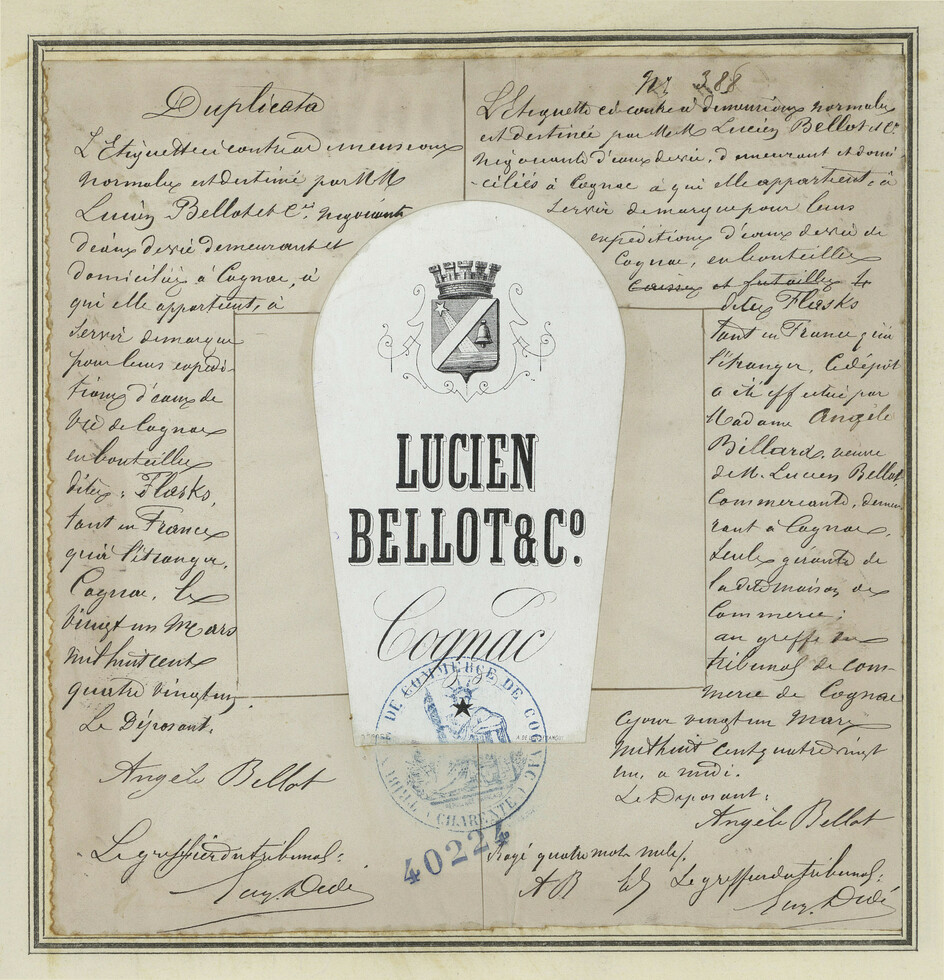 Duplicata
L'Etiquette ci contre a dimensions
normales est destinée par MM
Lucien Bellot et Cie négociants
d'eaux de vie demeurant et
domiciliés à Cognac, à
qui elle appartient, à
servir de marque
pour leurs expédi-
tions d'eaux de
vie de Cognac
en bouteilles
dites: Flasks,
tant en France
qu'à l'étranger.
Cognac, le
vingt un Mars
mil huit cent
quatre vingt un.
Le Déposant.
Angèle Bellot
Le greffier du tribunal:
Eug. Dedé
No 388
L'Etiquette ci contre à dimensions normales
est destinée par M.M. Lucien Bellot et Cie
négociants d'eaux de vie, demeurant et domi-
-ciliés à Cognac à qui elle appartient, à
servir de marque pour leurs
expéditions d'eaux de vie de
Cognac, en bouteilles
caisses et futailles
dites Flasks
tant en France qu'à
l'étranger, le dépôt
a été effectué par
Madame Angèle
Billard, veuve
de M. Lucien Bellot
Commerçante, demeu-
rant à Cognac,
Seule gérante de
la dite maison de
Commerce;
au greffe du
tribunal de com-
merce de Cognac
ce jour vingt un Mars
mil huit cent quatre vingt
un, à midi.
Le Déposant:
Angèle Bellot
Rayé quatre mots nuls.
AB ED Le greffier du tribunal:
Eug. Dedé
LUCIEN
BELLOT & Co.
Cognac
DE COMMERCE DE COGNAC
CHARENTE
40224